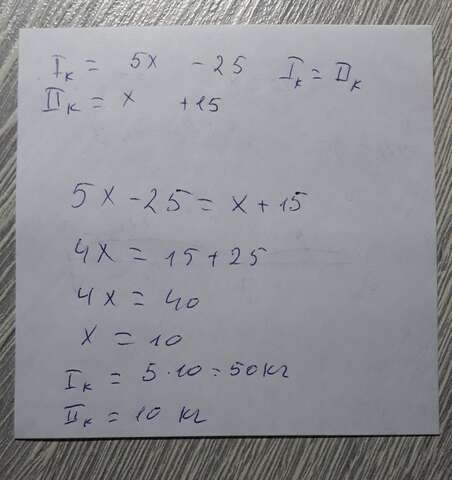 I к = 5x - 25 I к = II к
II к = x + 15
5x - 25 = x + 15
4x = 15 + 25
4x = 40
x = 10
I к = 5 · 10 = 50 кг
II к = 10 кг